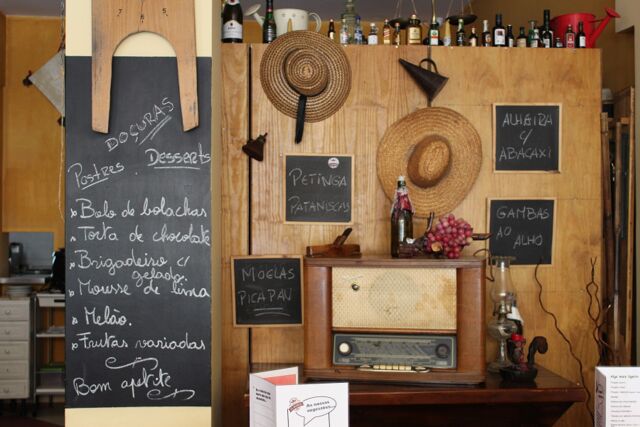 DOÇURAS
Postres . Desserts
» Bolo de bolachas
» Torta de chocolate
» Brigadeiro c/
gelado.
» Mousse de lima
» Melão.
» Frutas variadas
Bom apetite
PETINGA
PATANISCAS
MOELAS
PICAPAU
ALHEIRA
c/
ABACAXI
GAMBAS
AO
ALHO
As nossas
sugestões...